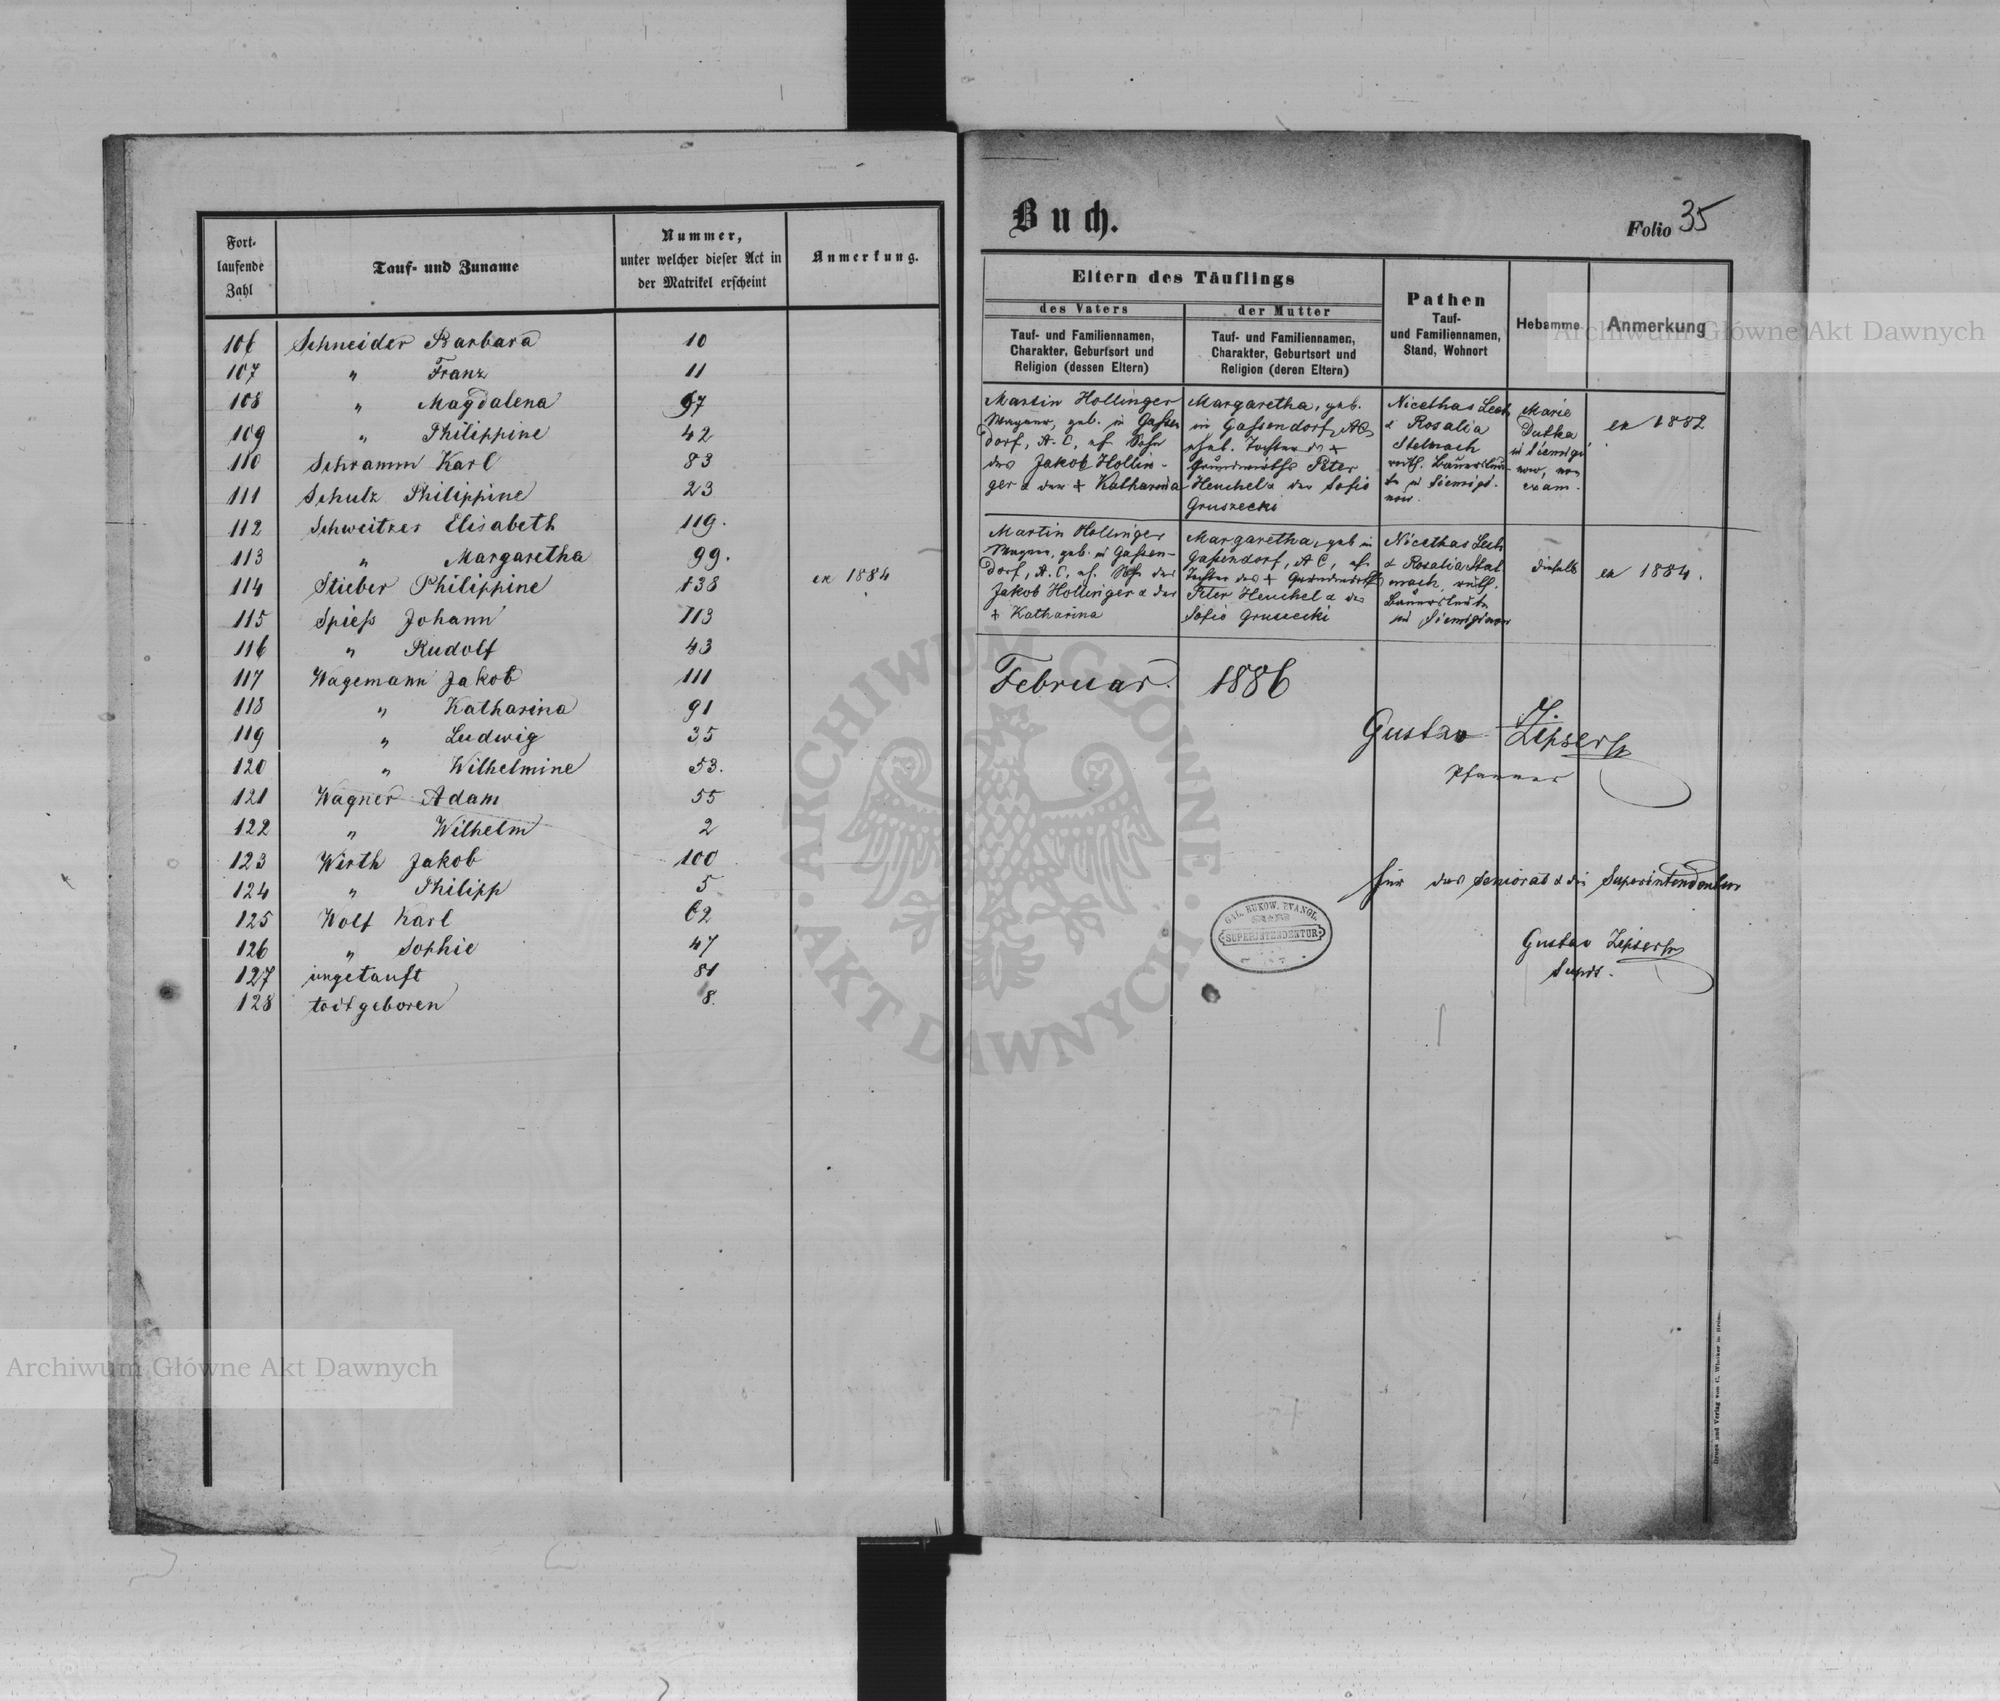 Fort-
laufende
Zahl
Tauf- und Zuname
Nummer,
unter welcher dieser Act in
der Matrikel erscheint
Anmerkung.
106 Schneider Barbara 10
107 " Franz 11
108 " Magdalena 97
109 " Philippine 42
110 Schramm Karl 83
111 Schulz Philippine 23
112 Schweitzer Elisabeth 119.
113 " Margaretha 99.
114 Stieber Philippine 138 ex 1884
115 Spiess Johann 113
116 " Rudolf 43
117 Wagemann Jakob 111
118 " Katharina 91
119 " Ludwig 35
120 " Wilhelmine 53.
121 Wagner Adam 55
122 " Wilhelm 2
123 Wirth Jakob 100
124 " Philipp 5
125 Wolf Karl 62
126 " Sophie 47
127 ungetauft 81
128 todtgeboren 8.
Buch.
Folio 35
Eltern des Täuflings
des Vaters
Tauf- und Familiennamen,
Charakter, Geburtsort und
Religion (dessen Eltern)
der Mutter
Tauf- und Familiennamen,
Charakter, Geburtsort und
Religion (deren Eltern)
Pathen
Tauf-
und Familiennamen,
Stand, Wohnort
Hebamme
Anmerkung
Martin Hollinger
Wagner, geb. in Gassen
dorf, A. C., eh. Sohn
des Jakob Hollin-
ger & der + Katharina
Margaretha, geb.
in Gassendorf, AC,
ehel. Tochter d. +
Grundwirths Peter
Henchel & der Sofie
Gruszecki
Nicethas Lech
& Rosalia
Stelmach
ruth. Bauersleu-
te in
Marie
Dutka
in Siemigi
now, non
exam.
ex 1882
Martin Hollinger
Wagner, geb. in Gassen-
dorf, A. C., eh. Sohn des
Jakob Hollinger & der
+ Katharina
Margaretha, geb in
Gassendorf, A C, eh.
Tochter des + Grundwirths
Peter Henchel & der
Sofie Gruszecki
Nicethas Lech
& Rosalia Stel
mach, ruth.
Bauersleute
in Siemiginow
dieselbe
ex 1884.
Februar. 1886
Gustav Zipser
Pfarrer
für das Seniorat & die Superintendentur
GAL. BUKOW. EVANGL.
SUPERINTENDENTUR
Gustav Zipser
Supdt.
Druck und Verlag von C.
Archiwum Główne Akt Dawnych
Archiwum Główne Akt Dawnych
ARCHIWUM GŁÓWNE · AKT DAWNYCH ·